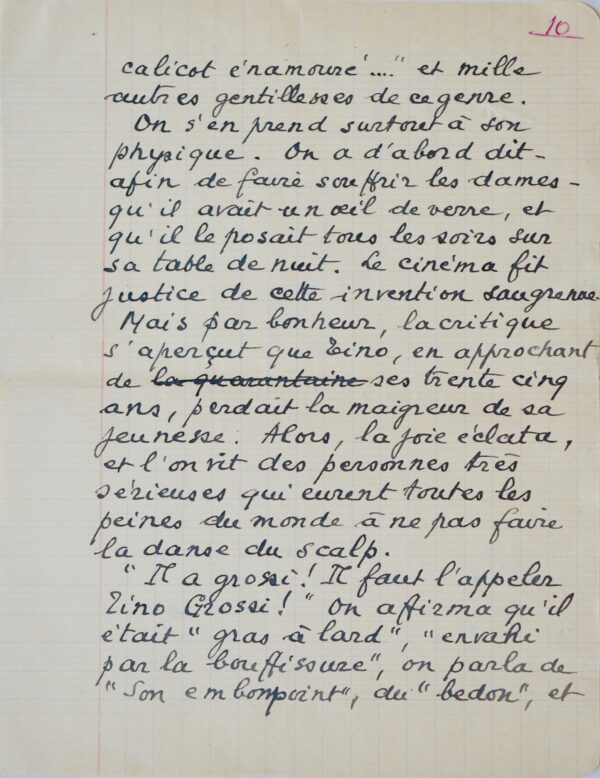 10
calicot énamouré...." et mille
autres gentillesses de ce genre.
On s'en prend surtout à son
physique. On a d'abord dit -
afin de faire souffrir les dames -
qu'il avait un œil de verre, et
qu'il le posait tous les soirs sur
sa table de nuit. Le cinéma fit
justice de cette invention saugrenue.
Mais par bonheur, la critique
s'aperçut que Tino, en approchant
de la quarantaine ses trente cinq
ans, perdait la maigreur de sa
jeunesse. Alors, la joie éclata,
et l'on vit des personnes très
sérieuses qui eurent toutes les
peines du monde à ne pas faire
la danse du scalp.
" Il a grossi! Il faut l'appeler
Tino Grossi! " On affirma qu'il
était " gras à lard", "envahi
par la bouffissure", on parla de
"Son embonpoint", du " bedon", et